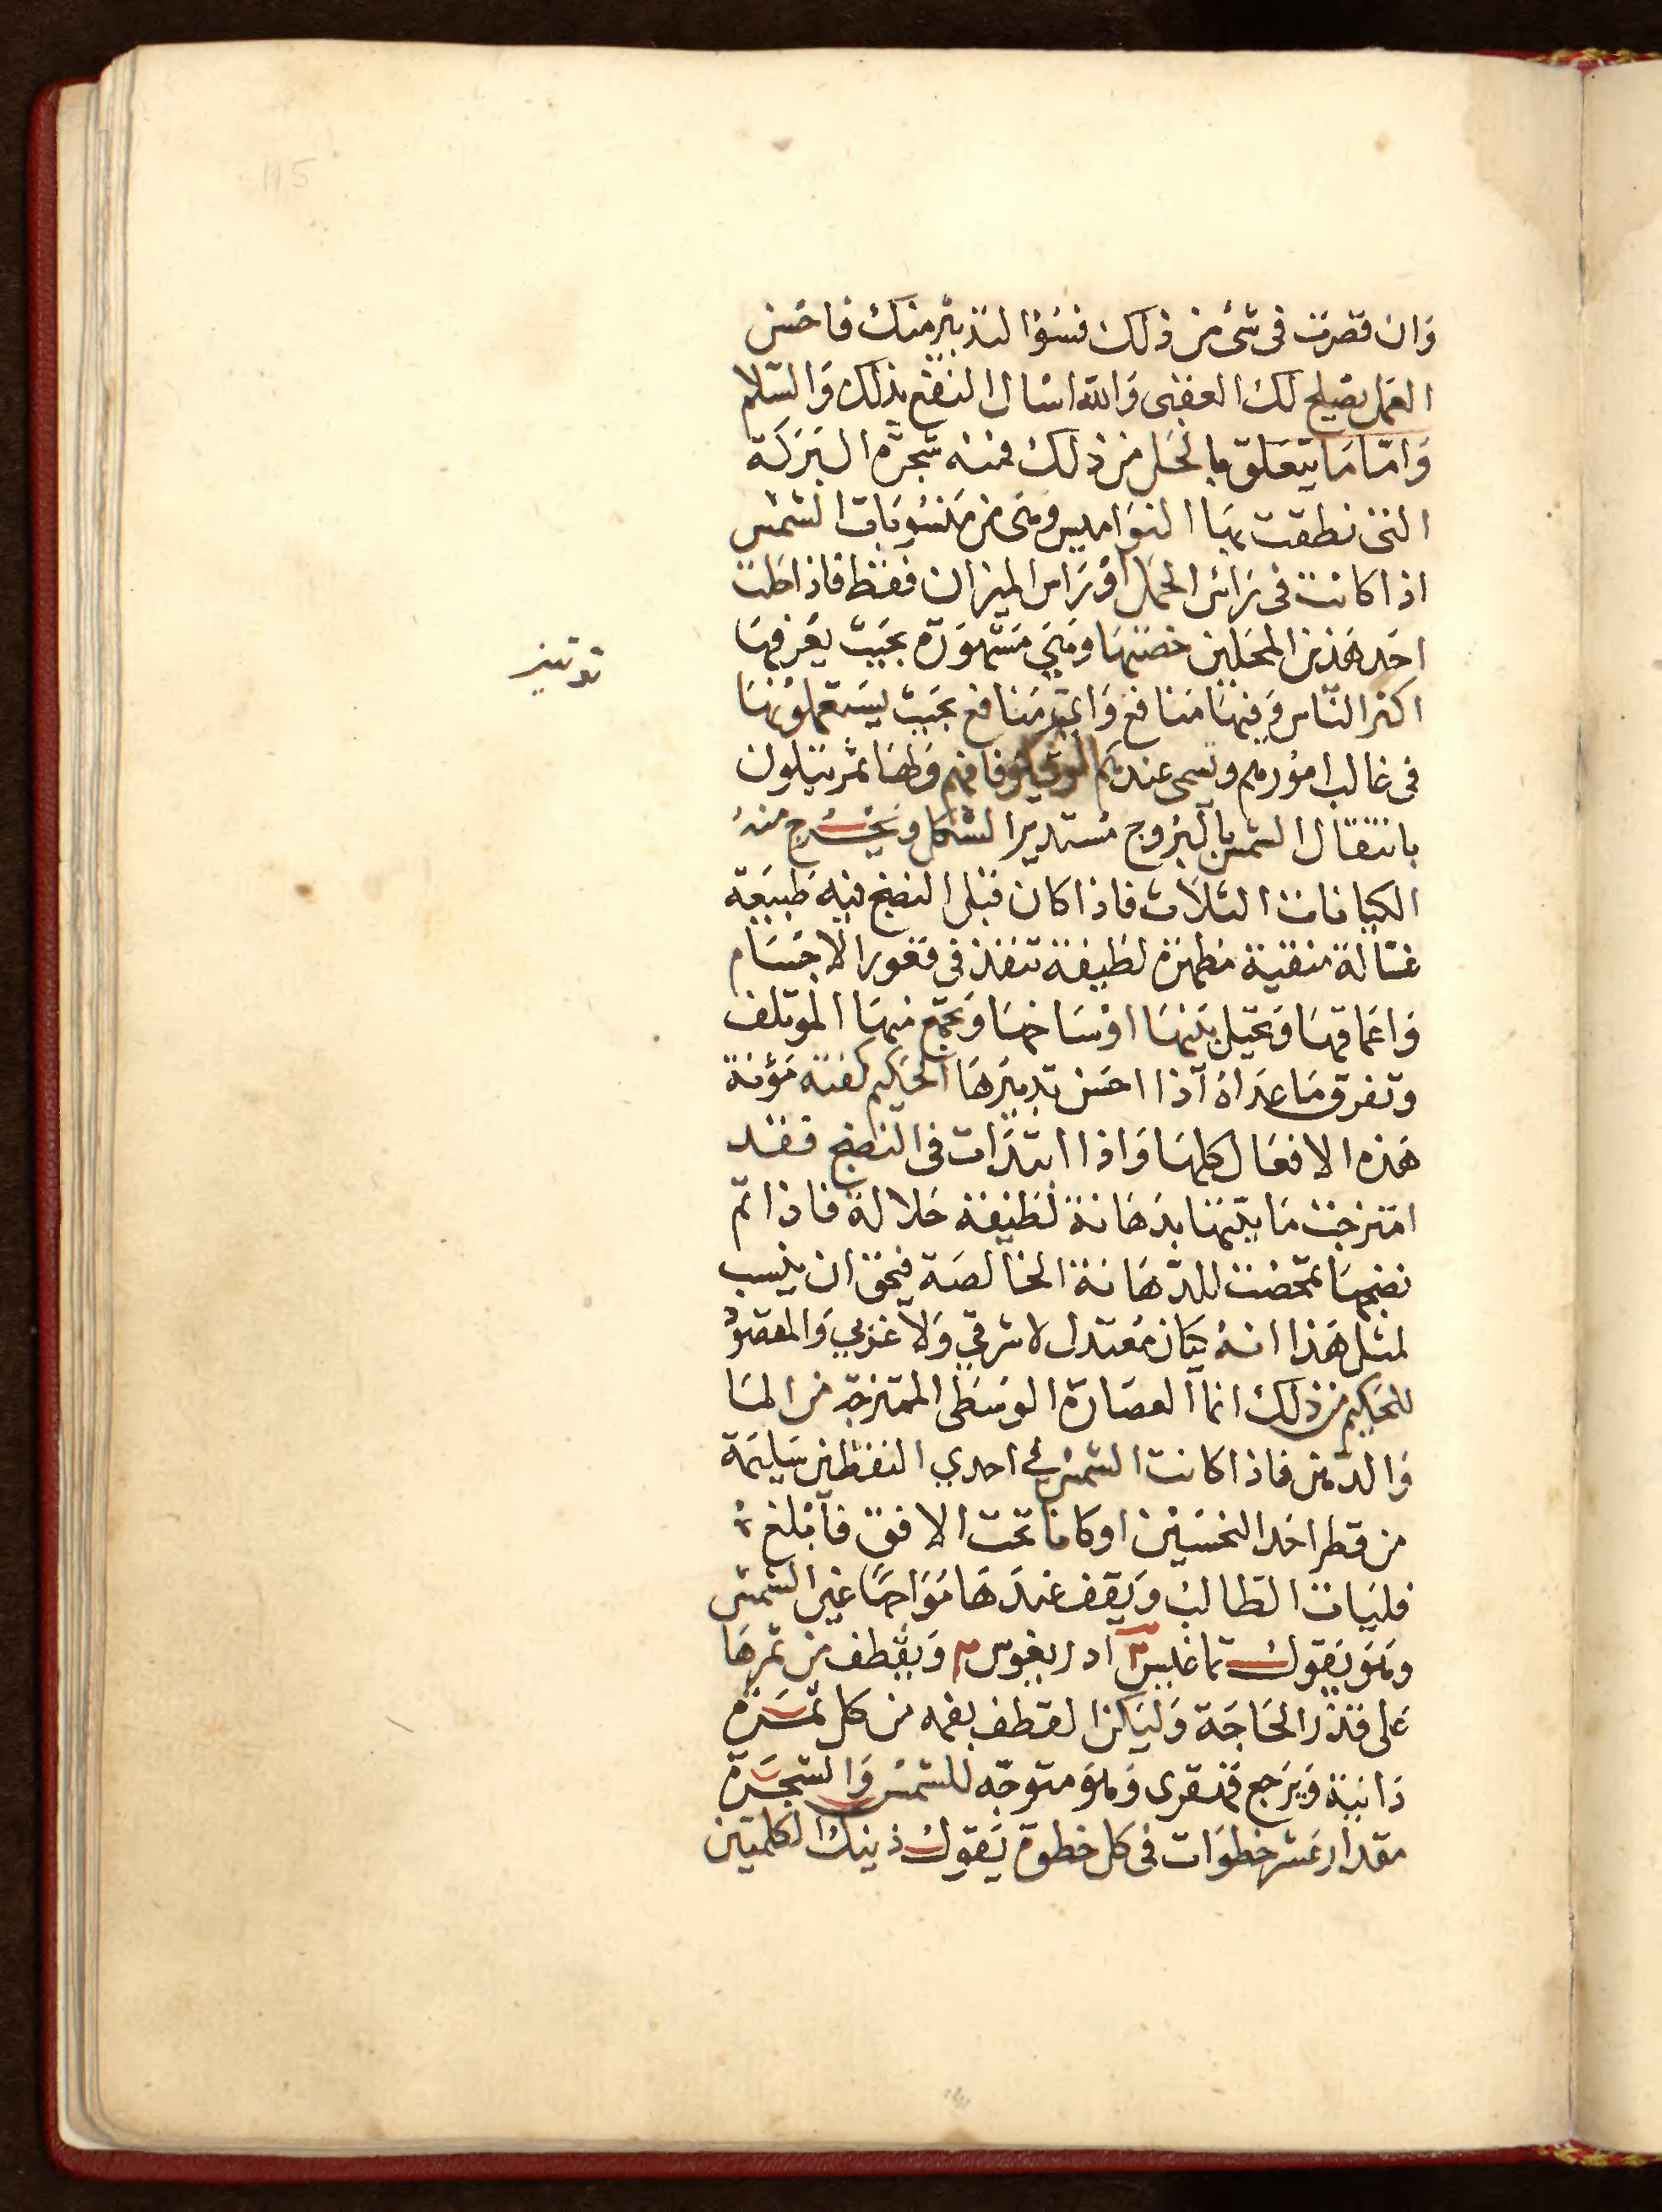 وَان قصرت فى شئ من ذلك فسُوْا لتدبير منك فاحسن
العمل يصلح لك العقبى وَالله اسال النفع بذلك وَالسّلام
وَامّا مَا يتعَلق بالحَل من ذلك فمنه شجرة البَركَة
التى نطقت بهَا النوَاميس وهى من مَنسُوبَات الشمْس
اذا كانت فى رَاس الحمَل اوْ رَاس الميزان فقط فاذا حَلت
احَد هَذين المحَلين خصّتهَا وهَى مَشهوَرة بحَيث يعْرفهَا
اكثر النّاس وَفيهَا مَنافع وَاىّ مَنافع بحَيث يسَتعملوُنهَا
فى غالب امُورهم وتسمى عندهم فافهم وَلهَا ثمر يتلون
بانتقال الشمس بالبرُوج مُستدير الشكل وَيخْرج منهُ
الكيانات الثلاَث فاذا كان قبل النضج فيه طَبيعَة
غسّالة منقية مطهرة لطيفة تنفذ فى قعور الاجسَام
وَاعَماقهَا وَتحيَل بَينهَا اوْسَاخهَا وَتجمَع منهَا الموَتلف
وتفرق مَا عدَاهُ اذا احسَن تدبيَرهَا الحَكيم كفته مَؤنة
هَذه الافعَال كلهَا وَاذا ابتدَات فى النضج فقد
امَتزجت مَائيّتهَا بدَهَانة لَطيفَة حَلالة فاذا تم
نضجهَا تمحّضت للدّهَانة الخالصَة فيحق ان ينسب
لمثل هَذا انهُ كيَان مُعتدل لا شرقي وَلا غرَبي وَالمقصوُد
للحَكيم من ذلك انما العصَارة الوسَطى الممتزجَة من المَا
وَالدّهن فاذا كانت الشمسْ في احدي النقطتين سَليمَة
من قطر احَد النحسَيْن او كانا تحَت الافق فاَبْلغ
فليَات الطالب وَيقف عندَهَا مُوَاجهًا عَين الشمس
وَهوَ يَقول تماغيس ادريغوس وَيَقطف من ثمرهَا
عَلى قدْر الحَاجَة وَليَكن القطف بفمه من كل ثمَرة
دَانيَة وَيَرجع قهقرى وَهوَ متوَجّه للشمسْ وَالشجَرة
مقدار عَشر خطوَات فى كل خطوة يَقول ذينك الكلمتين